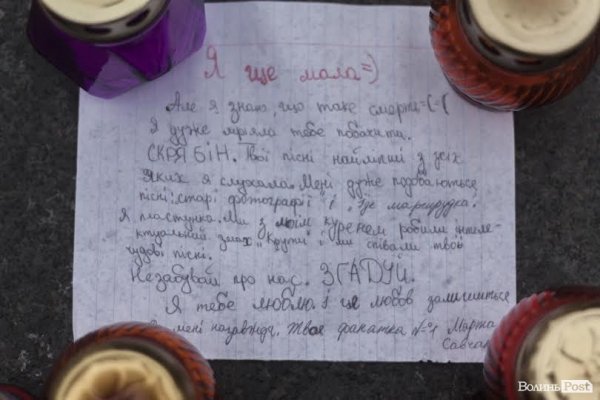 Я ще мала=)
Але я знаю, що таке смерть=(-(
Я дуже мріяла тебе побачити.
СКРЯБІН. Твої пісні найліпші з усіх
яких я слухала. Мені дуже подобаються
пісні: старі фотографії і
Я пластунка. Ми з моїм куренем робили інтеле-
ктуальний " і ми співали твої
чудові пісні.
Незабувай про нас. ЗГАДУЙ.
Я тебе люблю і ця любов залишиться
в мені назавжди. Твоя фанатка №1 Марта
ВолиньPost